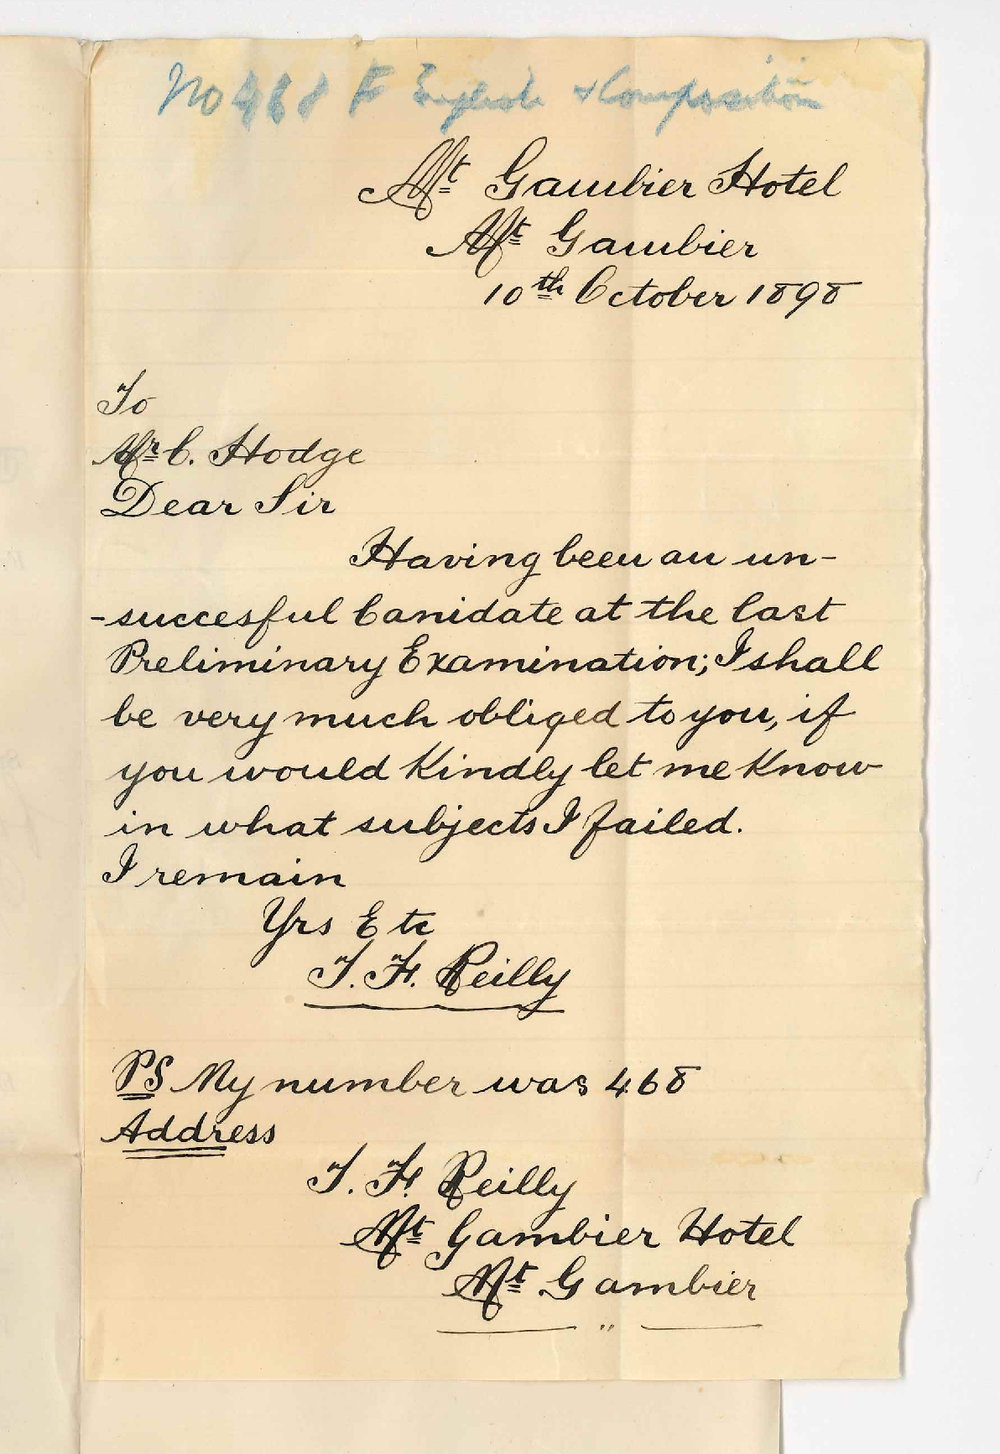 No 468 F English & Composition
Mt Gambier Hotel
Mt Gambier
10th October 1898
To
Mr C. Hodge
Dear Sir
Having been an un-
-succesful Canidate at the last
Preliminary Examination; I shall
be very much obliged to you, if
you would Kindly let me Know
in what subjects I failed.
I remain
Yrs Etc
T. F. Reilly
PS My number was 468
Address
T. F. Reilly
Mt Gambier Hotel
Mt Gambier
"